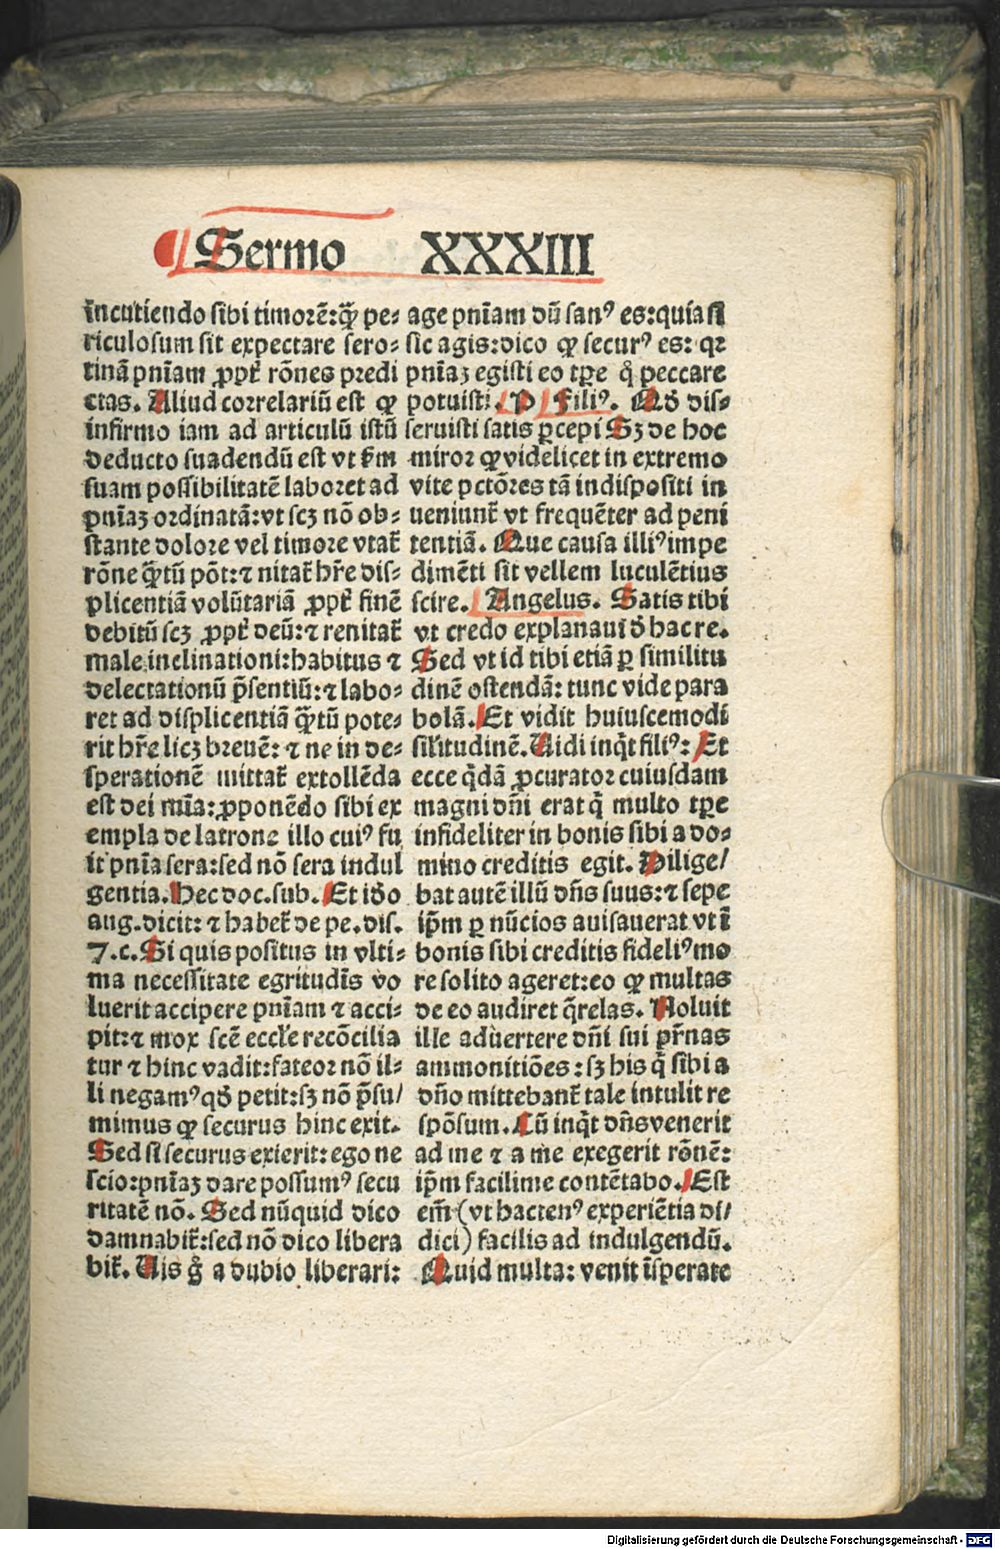 Sermo XXXIII
incutiendo sibi timorē:ꝙ̄ pe⸗
riculosum sit expectare sero⸗
tinā pn̄iam ꝓpt̄ rōnes predi
ctas. Aliud correlariū est ꝙ
infirmo iam ad articulū istū
deducto suadendū est vt ẜm
suam possibilitatē laboret ad
pn̄iaꝫ ordinatā:vt scꝫ nō ob⸗
stante dolore vel timore vtat̄
rōne ꝙ̄tū pōt:⁊ nitat̄ hr̄e dis⸗
plicentiā volūtariā ꝓpt̄ finē
debitū scꝫ ꝓpt̄ deū:⁊ renitat̄
male inclinationi:habitus ⁊
delectationū p̄sentiū:⁊ labo⸗
ret ad displicentiā ꝙ̄tū pote⸗
rit hr̄e licꝫ breuē: ⁊ ne in de⸗
sperationē mittat̄ extollēda
est dei mīa:ꝓponēdo sibi ex
empla de latrone illo cuiꝰ fu
it pn̄ia sera:sed nō sera indul
gentia. Hec doc. sub. Et iđo
aug. dicit: ⁊ habet̄ de pe. dis.
7.c. Si quis positus in vlti⸗
ma necessitate egritudīs vo
luerit accipere pn̄iam ⁊ acci⸗
pit:⁊ mox scē eccl̄e recōcilia
tur ⁊ hinc vadit:fateor nō il⸗
li negamꝰ qđ petit:sꝫ nō p̄su/
mimus ꝙ securus hinc exit.
Sed si securus exierit: ego ne
scio:pn̄iaꝫ dare possumꝰ secu
ritatē nō. Sed nūquid dico
damnabit̄:sed nō dico libera
bit̄. Uis g̊ a dubio liberari:
age pn̄iam dū sanꝰ es:quia si
sic agis:dico ꝙ securꝰ es: qꝛ
pn̄iaꝫ egisti eo tꝑe q̄ peccare
potuisti. P Filiꝰ. Mō dis⸗
seruisti satis ꝑcepi Sꝫ de hoc
miror ꝙ videlicet in extremo
vite pctōres tā indispositi in
ueniunt̄ vt frequēter ad peni
tentiā. Que causa illiꝰ impe
dimēti sit vellem luculētius
scire. Angelus. Satis tibi
vt credo explanaui đ hac re.
Sed vt id tibi etiā ꝑ similitu
dinē ostendā: tunc vide para
bolā. Et vidit huiuscemodi
sil̄itudinē. Uidi inq̄t filiꝰ: Et
ecce q̄dā ꝓcurator cuiusdam
magni dn̄i erat q̄ multo tꝑe
infideliter in bonis sibi a do⸗
mino creditis egit. Dilige/
bat autē illū dn̄s suus:⁊ sepe
ip̄m ꝑ nūcios auisauerat vt ī
bonis sibi creditis fideliꝰ mo
re solito ageret:eo ꝙ multas
de eo audiret q̄relas. Noluit
ille aduertere dn̄i sui pr̄nas
ammonitiōes:sꝫ his q̄ sibi a
dn̄o mittebant̄ tale intulit re
spōsum. Cū inq̄t dn̄s venerit
ad me ⁊ a me exegerit rōnē:
ip̄m facilime contētabo. Est
em̄ (vt hactenꝰ experiētia di/
dici) facilis ad indulgendū.
Quid multa: venit īsperate
Digitalisierung gefördert durch die Deutsche Forschungsgemeinschaft - DFG